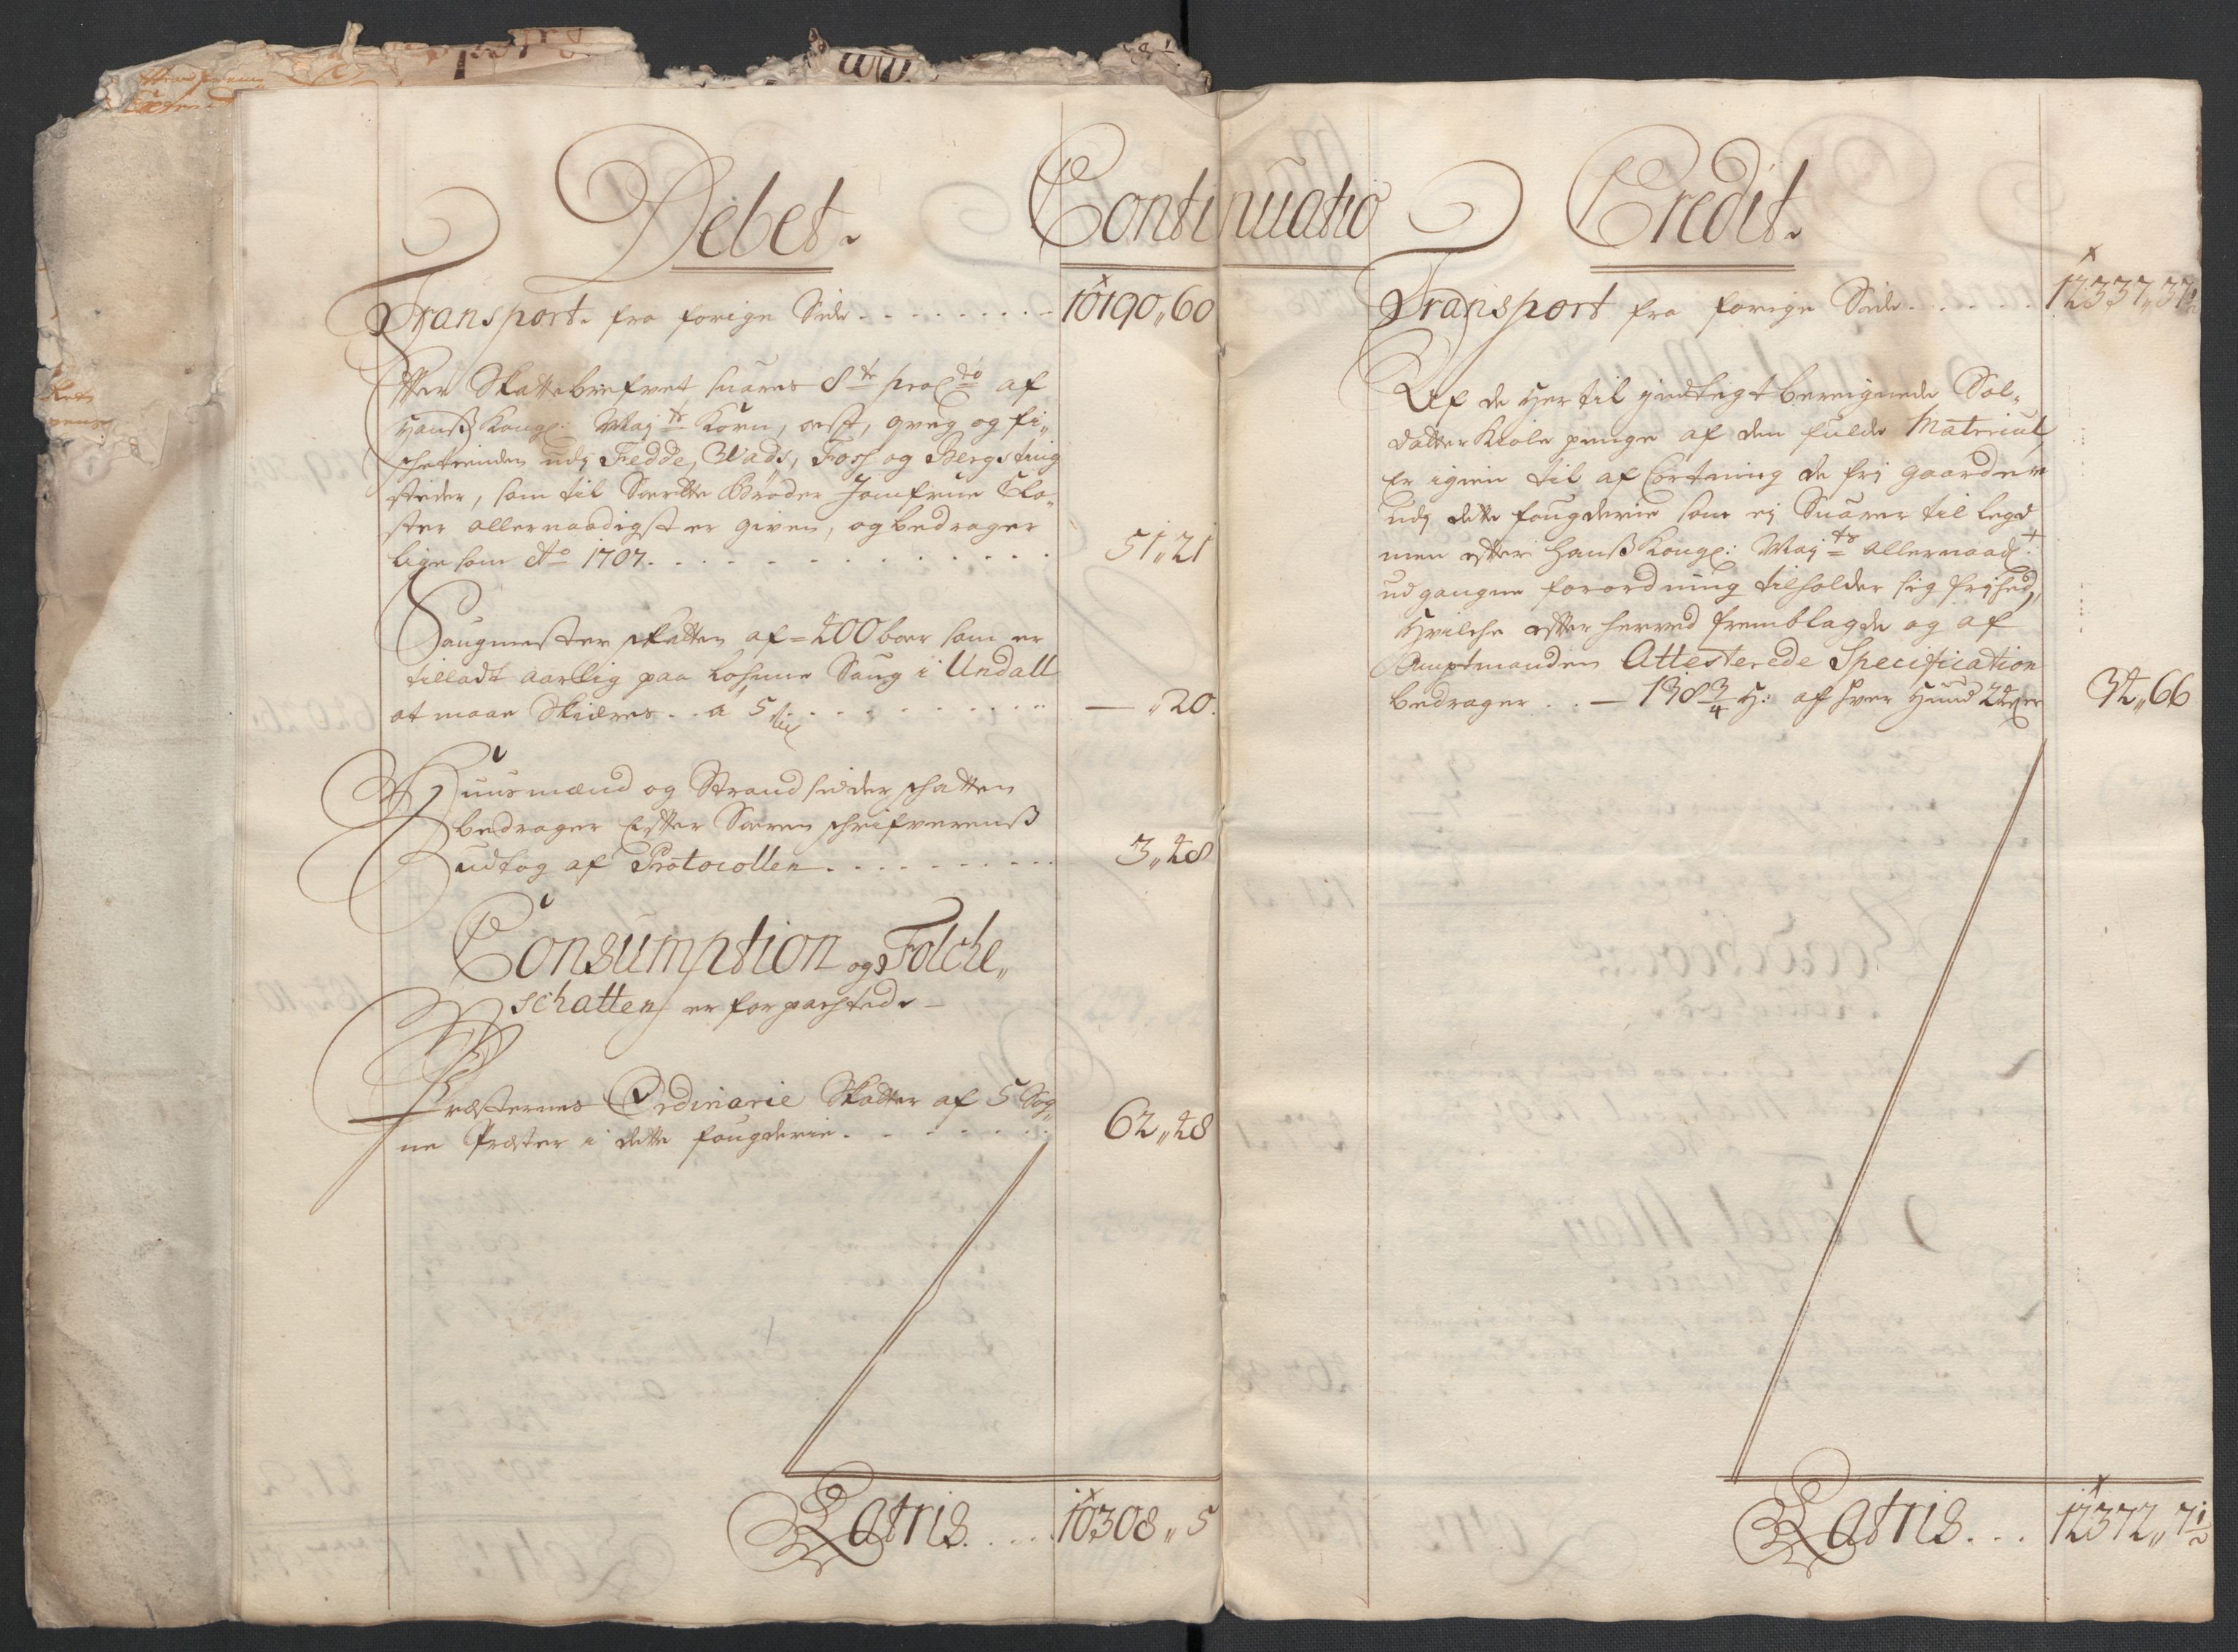 Debet. Continuatio Credit.
Transport. fra forige Side . . . . . . . . . 10190„60
Efter Skattebrefvet svares 8te pro Cto af
Hanß Kongl: Mayts Korn, ost, qveg og fi„
scketienden udj Fedde, Wads, Foss og Bergs ting
steder, som til Sverdtte Brøder Jomfrue Clo„
ster allernaadigst er given, og bedrager
lige som Ao 1707 . . . . . . . . . . 51„21
Saugmester skatten af 400 boer som er
tilladt aarlig paa Lohnne Saug i Undall
at maae Skieres . . a 5 . . . . . . . . . — „20.
Huusmænd og Strand sidder schatten
bedrager Efter Sorenschrifverenß
udtog af Protocollen . . . . . . . . . 3„48
Consumption og Folche„
schatten er forpachtede —
Præsternes Ordinarie Skatter af 5 Sog„
ne Præster i dette fougderie . . . . . . . 62„48
Latris . . . 10308„5
Transport fra forige Side . . . . . 12337„37½
Af de her til indtegt beregnede Sol„
datter Kiole penge af den fulde Matericul
Er igien til af Cortning de frj gaarder
udj dette fougderie som ej Svarer til legd
men efter Hanß Kongl: Mayts allernaadt:
udgangne forordning tilholder sig frjhed,
Hvilche efter herved fremblagde og af
Amptmanden Attesterede Specification
bedrager . . — 138¾ H: af hver Huud 24 ser 34„66
Latris . . . 12372„7½